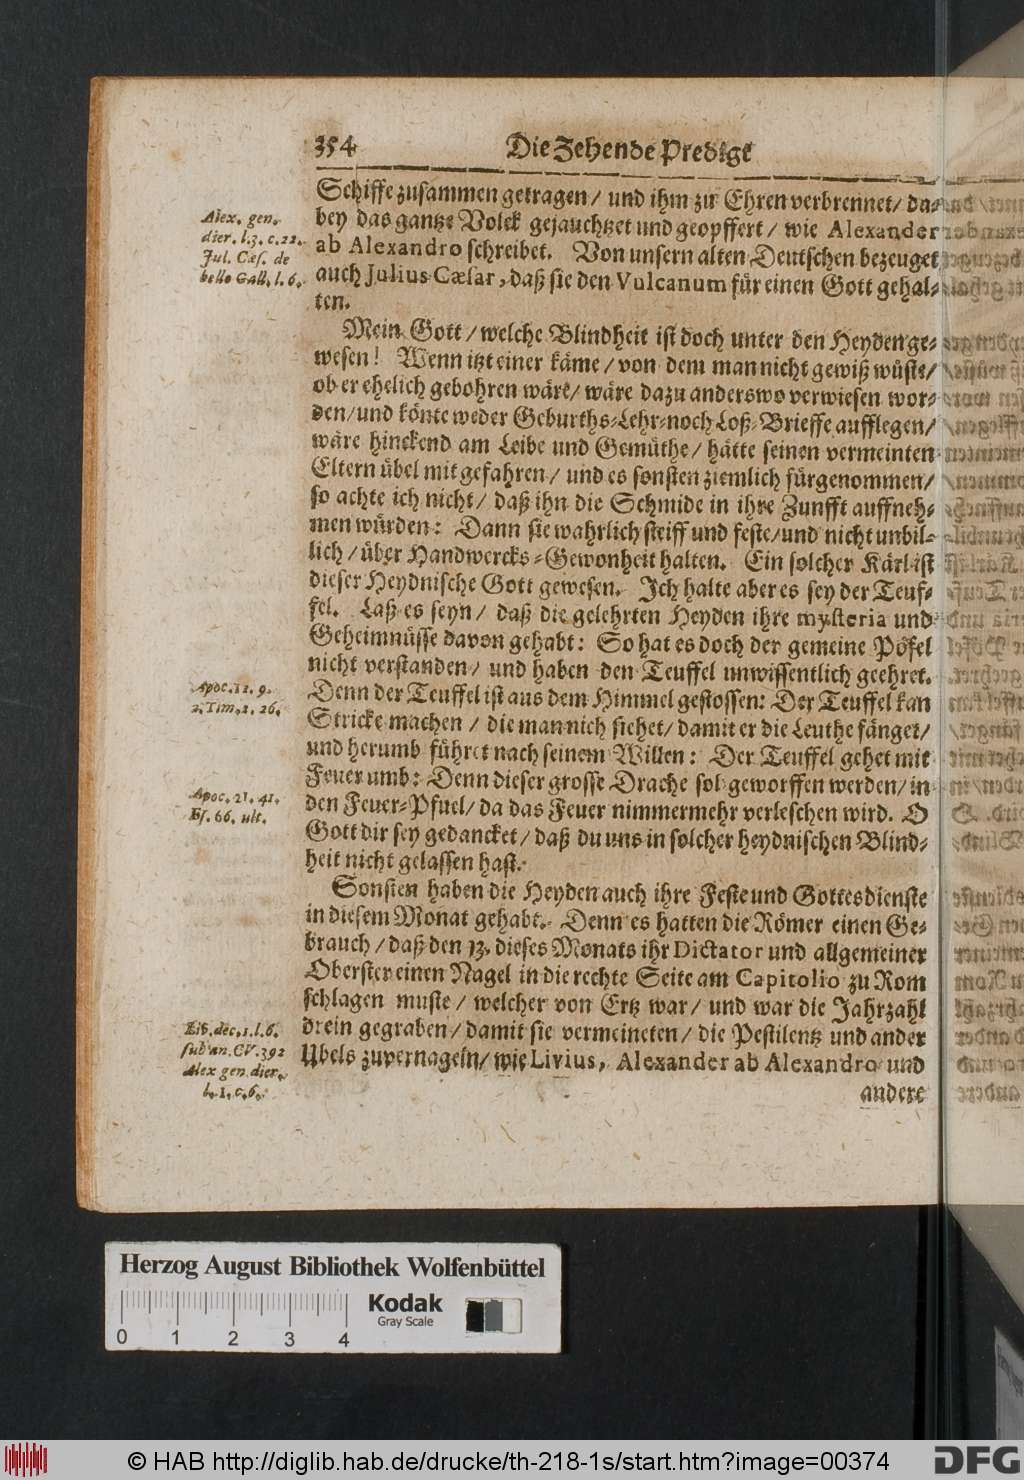 354 Die Zehende Predigt
Schiffe zusammen getragen / und ihm zu Ehren verbrennet / da-
bey das gantze Volck gejauchtzet und geopffert / wie Alexander
ab Alexandro schreibet. Von unsern alten Deutschen bezeuget
auch Julius Cæsar, daß sie den Vulcanum für einen Gott gehal-
ten.
Alex. gen.
dier. l.3. c.22.
Jul. Cæs. de
bello Gall. l. 6.
Mein Gott / welche Blindheit ist doch unter den Heyden ge-
wesen! Wenn itzt einer käme / von dem man nicht gewiß wüste /
ob er ehelich gebohren wäre / wäre dazu anderswo verwiesen wor-
den / und könte weder Geburths-Lehr-noch Loß-Brieffe aufflegen /
wäre hinckend am Leibe und Gemüthe / hätte seinen vermeinten
Eltern übel mit gefahren / und es sonsten ziemlich fürgenommen /
so achte ich nicht / daß ihn die Schmide in ihre Zunfft auffneh-
men würden: Dann sie wahrlich steiff und feste / und nicht unbil-
lich / über Handwercks-Gewonheit halten. Ein solcher Kärl ist
dieser Heydnische Gott gewesen. Ich halte aber es sey der Teuf-
fel. Laß es seyn / daß die gelehrten Heyden ihre mysteria und
Geheimnüsse davon gehabt: So hat es doch der gemeine Pöfel
nicht verstanden / und haben den Teuffel unwissentlich geehret.
Denn der Teuffel ist aus dem Himmel gestossen: Der Teuffel kan
Stricke machen / die man nich siehet / damit er die Leuthe fänget /
und herumb führet nach seinem Willen: Der Teuffel gehet mit
Feuer umb: Denn dieser grosse Drache sol geworffen werden / in
den Feuer-Pfuel / da das Feuer nimmermehr verleschen wird. O
Gott dir sey gedancket / daß du uns in solcher heydnischen Blind-
heit nicht gelassen hast.
Apoc. 12. 9.
2. Tim. 2. 26.
Apoc. 21. 41.
Es. 66. ult.
Sonsten haben die Heyden auch ihre Feste und Gottesdienste
in diesem Monat gehabt. Denn es hatten die Römer einen Ge-
brauch / daß den 13. dieses Monats ihr Dictator und allgemeiner
Oberster einen Nagel in die rechte Seite am Capitolio zu Rom
schlagen muste / welcher von Ertz war / und war die Jahrzahl
drein gegraben / damit sie vermeineten / die Pestilentz und ander
Ubels zuvernageln / wie Livius, Alexander ab Alexandro und
andere
Lib. dec. 1. l. 6.
sub an. CV. 392
Alex gen. dier.
l. 1. c. 6.
Herzog August Bibliothek Wolfenbüttel
Kodak
Gray Scale
0 1 2 3 4
© HAB http://diglib.hab.de/drucke/th-218-1s/start.htm?image=00374
DFG